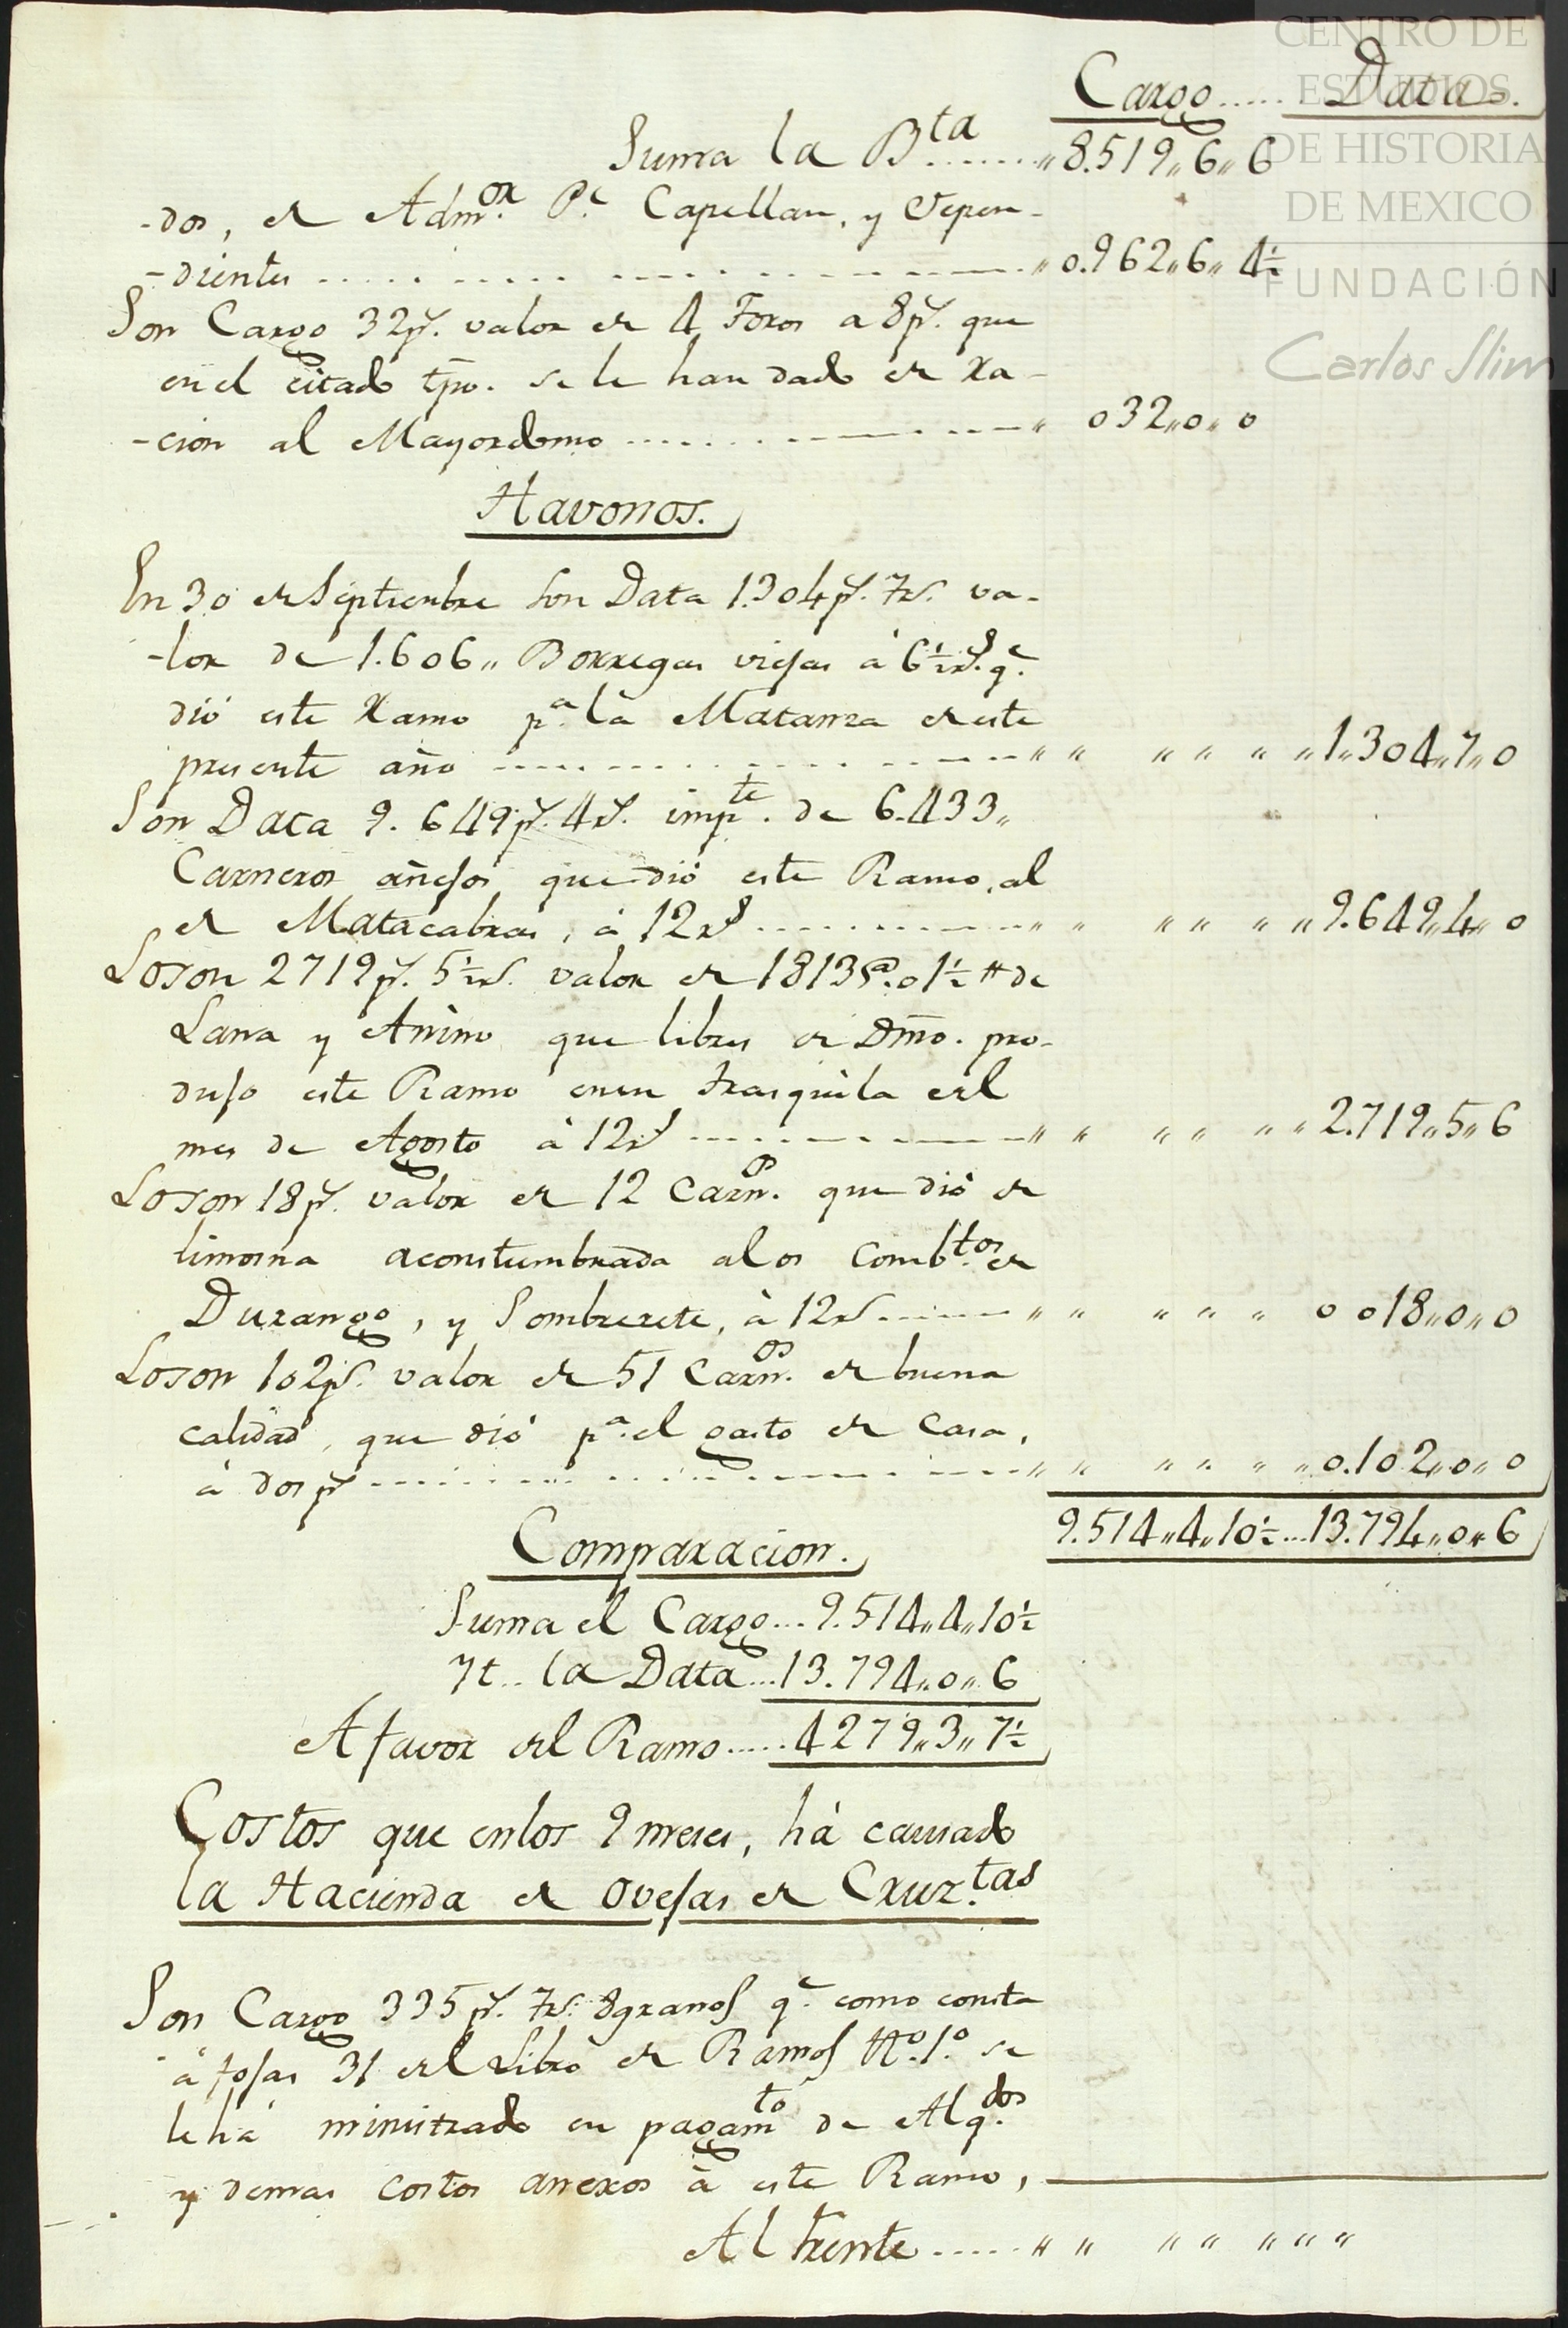 CENTRO DE
ESTUDIOS
DE HISTORIA
DE MEXICO
FUNDACIÓN
Carlos Slim
Cargo ..... Data.
Suma la Bta ....... „ 8.519„ 6„ 6
-dos, de Admor. Pe. Capellan, y Depen-
-dientes .................... „ 0.962„ 6„ 4½
Son Cargo 32ps. valor de 4 Toros a 8ps. que
en el citado tpo. se le han dado de Ra-
-cion al Mayordomo .................... „ 032„ 0„ 0
Havonos.
En 30 de Septiembre son Data 1.304ps. 7rs. va-
-lor de 1.606„ Borregas viejas á 6½rs. qe.
dió este Ramo pa. la Matanza de este
presente año .................... „ „ „ „ „ „ 1„304„7„0
Son Data 9.649ps. 4rs. impte. de 6.433„
Carneros añejos que dió este Ramo, al
de Matacabras, á 12rs .............. „ „ „ „ „ „ 9.649„4„0
Loson 2719ps. 5½rs. valor de 1813@. 01½ tt de
Lana y Anino que libres de Dmo. pro-
dujo este Ramo en su trasquila del
mes de Agosto á 12rs .............. „ „ „ „ „ „ 2.719„5„6
Loson 18ps. valor de 12 Carnos. que dió de
limosna acoustumbrada alos Combtos. de
Durango, y Sombrerete, á 12rs ....... „ „ „ „ „ 0 018„0„0
Loson 102ps. valor de 51 Carnos. de buena
calidad, que dió pa. el gasto de Casa,
á dos ps .................... „ „ „ „ „ „ 0.102„0„0
9.514„4„10½ ... 13.794„0„6
Comparacion.
Suma el Cargo ... 9.514„4„10½
Yt.. la Data ... 13.794„0„6
A favor del Ramo ..... 4279„3„7½
Costos que enlos 9 meses, há causado
la Hacienda de Ovejas de Cruz.tas
Son Cargo 335ps. 7rs. 8granos qe. como consta
á fojas 31 del Libro de Ramos No. 1o. se
le há ministrado en pagamto de Alqdos.
y demas costos anexos á este Ramo,
Al frente ..... „ „ „ „ „ „ „